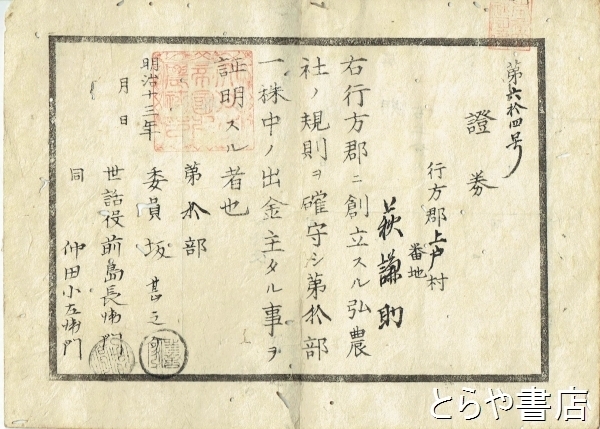 第六拾四号
證券
行方郡上戸村
番地
萩謙助
右行方郡ニ創立スル弘農
社ノ規則ヲ確守シ第拾部
一株中ノ出金主タル事ヲ
証明スル者也
明治廿三年
月 日
第拾部
委員 坂 甚之
世話役 前島長衛門
同 仲田小左衛門
とらや書店